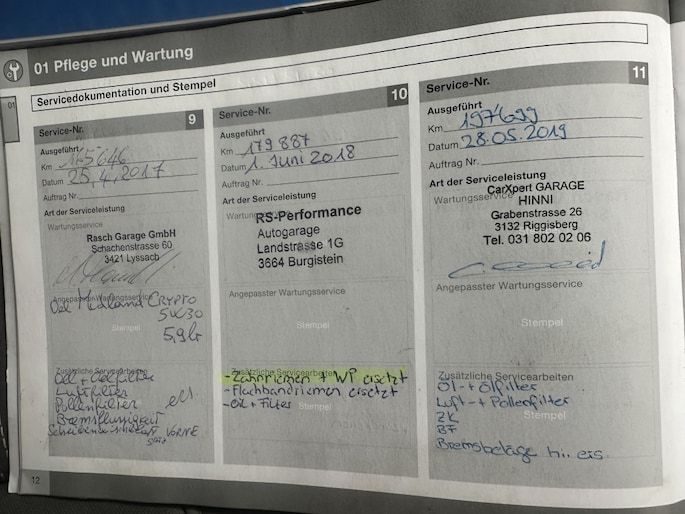 01 Pflege und Wartung
01
Servicedokumentation und Stempel
Service-Nr. 9
Ausgeführt
Km
Datum 25.4.2017
Auftrag Nr.
Art der Serviceleistung
Wartungsservice
Rasch Garage GmbH
Schachenstrasse 60
3421 Lyssach
Angepasster Wartungsservice
Oel Midland CRYPTO
5W30
Stempel
5,9 lr
Zusätzliche Servicearbeiten
Oel + Oelfilter
Luftfilter
Pollenfilter
Bremsflüssigkeit
VORNE
Service-Nr. 10
Ausgeführt
Km 179887
Datum 1. Juni 2018
Auftrag Nr.
Art der Serviceleistung
RS-Performance
Autogarage
Landstrasse 1G
3664 Burgistein
Angepasster Wartungsservice
Stempel
Zusätzliche Servicearbeiten
- Zahnriemen + WP ersetzt
- Flachbandriemen ersetzt
- Öl + Filter
Stempel
Service-Nr. 11
Ausgeführt
Km 197699
Datum 28.05.2019
Auftrag Nr.
Art der Serviceleistung
Wartungsservice
CarXpert GARAGE
HINNI
Grabenstrasse 26
3132 Riggisberg
Tel. 031 802 02 06
Angepasster Wartungsservice
Stempel
Zusätzliche Servicearbeiten
Öl- + Ölfilter
Luft- + Pollenfilter
Stempel
ZK
BF
Bremsbeläge hi. ers.
12